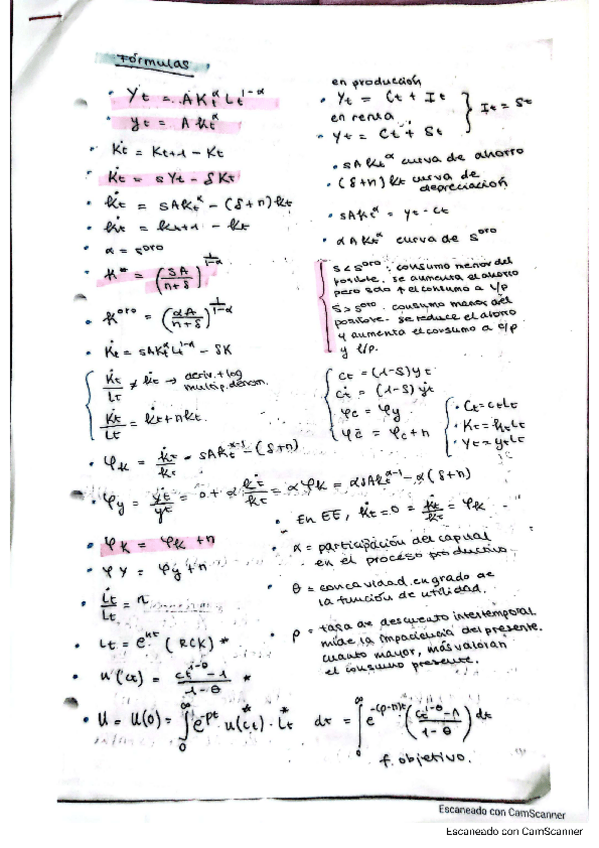 Fórmulas
• Yt = AKt^α Lt^1-α
• yt = Akt^α
• K̇t = Kt+1 - Kt
• K̇t = sYt - δKt
• k̇t = sAkt^α - (δ+n)kt
• k̇t = kt+1 - kt
• α = s^oro
• k* = (sA / n+δ)^1/1-α
• k^oro = (αA / n+δ)^1/1-α
• K̇t = sAKt^α Lt^1-α - δK
K̇t / Lt ≠ k̇t → deriv. + log
multip. denom.
K̇t / Lt = k̇t + nkt.
• φk = k̇t / kt = sAkt^α-1 - (δ+n)
• φy = ẏt / yt = 0 + α k̇t / kt = αφk = αsAkt^α-1 - α(δ+n)
• φK = φk + n
• φY = φy + n
• L̇t / Lt = n
• Lt = e^nt (RCK) *
• u(ct) = ct^1-θ - 1 / 1-θ *
• U = U(0) = ∫0^∞ e^-ρt u(ct)* · Lt* dt = ∫0^∞ e^-(ρ-n)t (ct^1-θ - 1 / 1-θ) dt
f. objetivo.
en producción
• Yt = Ct + It
en renta
• Yt = Ct + St
} It = St
• sAkt^α curva de ahorro
• (δ+n)kt curva de
depreciación
• sAkt^α = yt - ct
• αAkt^α curva de s^oro
s < s^oro: consumo menor del
posible. se aumenta el ahorro
pero solo ↑ el consumo a l/p
s > s^oro. consumo menor del
posible. se reduce el ahorro
y aumenta el consumo a c/p
y l/p.
ct = (1-s)yt
ċt = (1-s)ẏt
φc = φy
φC = φc + n
• Ct = ctLt
• Kt = ktLt
• Yt = ytLt
• En EE, k̇t = 0 = k̇t / kt = φk
• α = participación del capital
en el proceso productivo
• θ = concavidad, en grado de
la función de utilidad.
• ρ = tasa de descuento intertemporal.
mide la impaciencia del presente.
cuanto mayor, más valoran
el consumo presente.
Escaneado con CamScanner
Escaneado con CamScanner